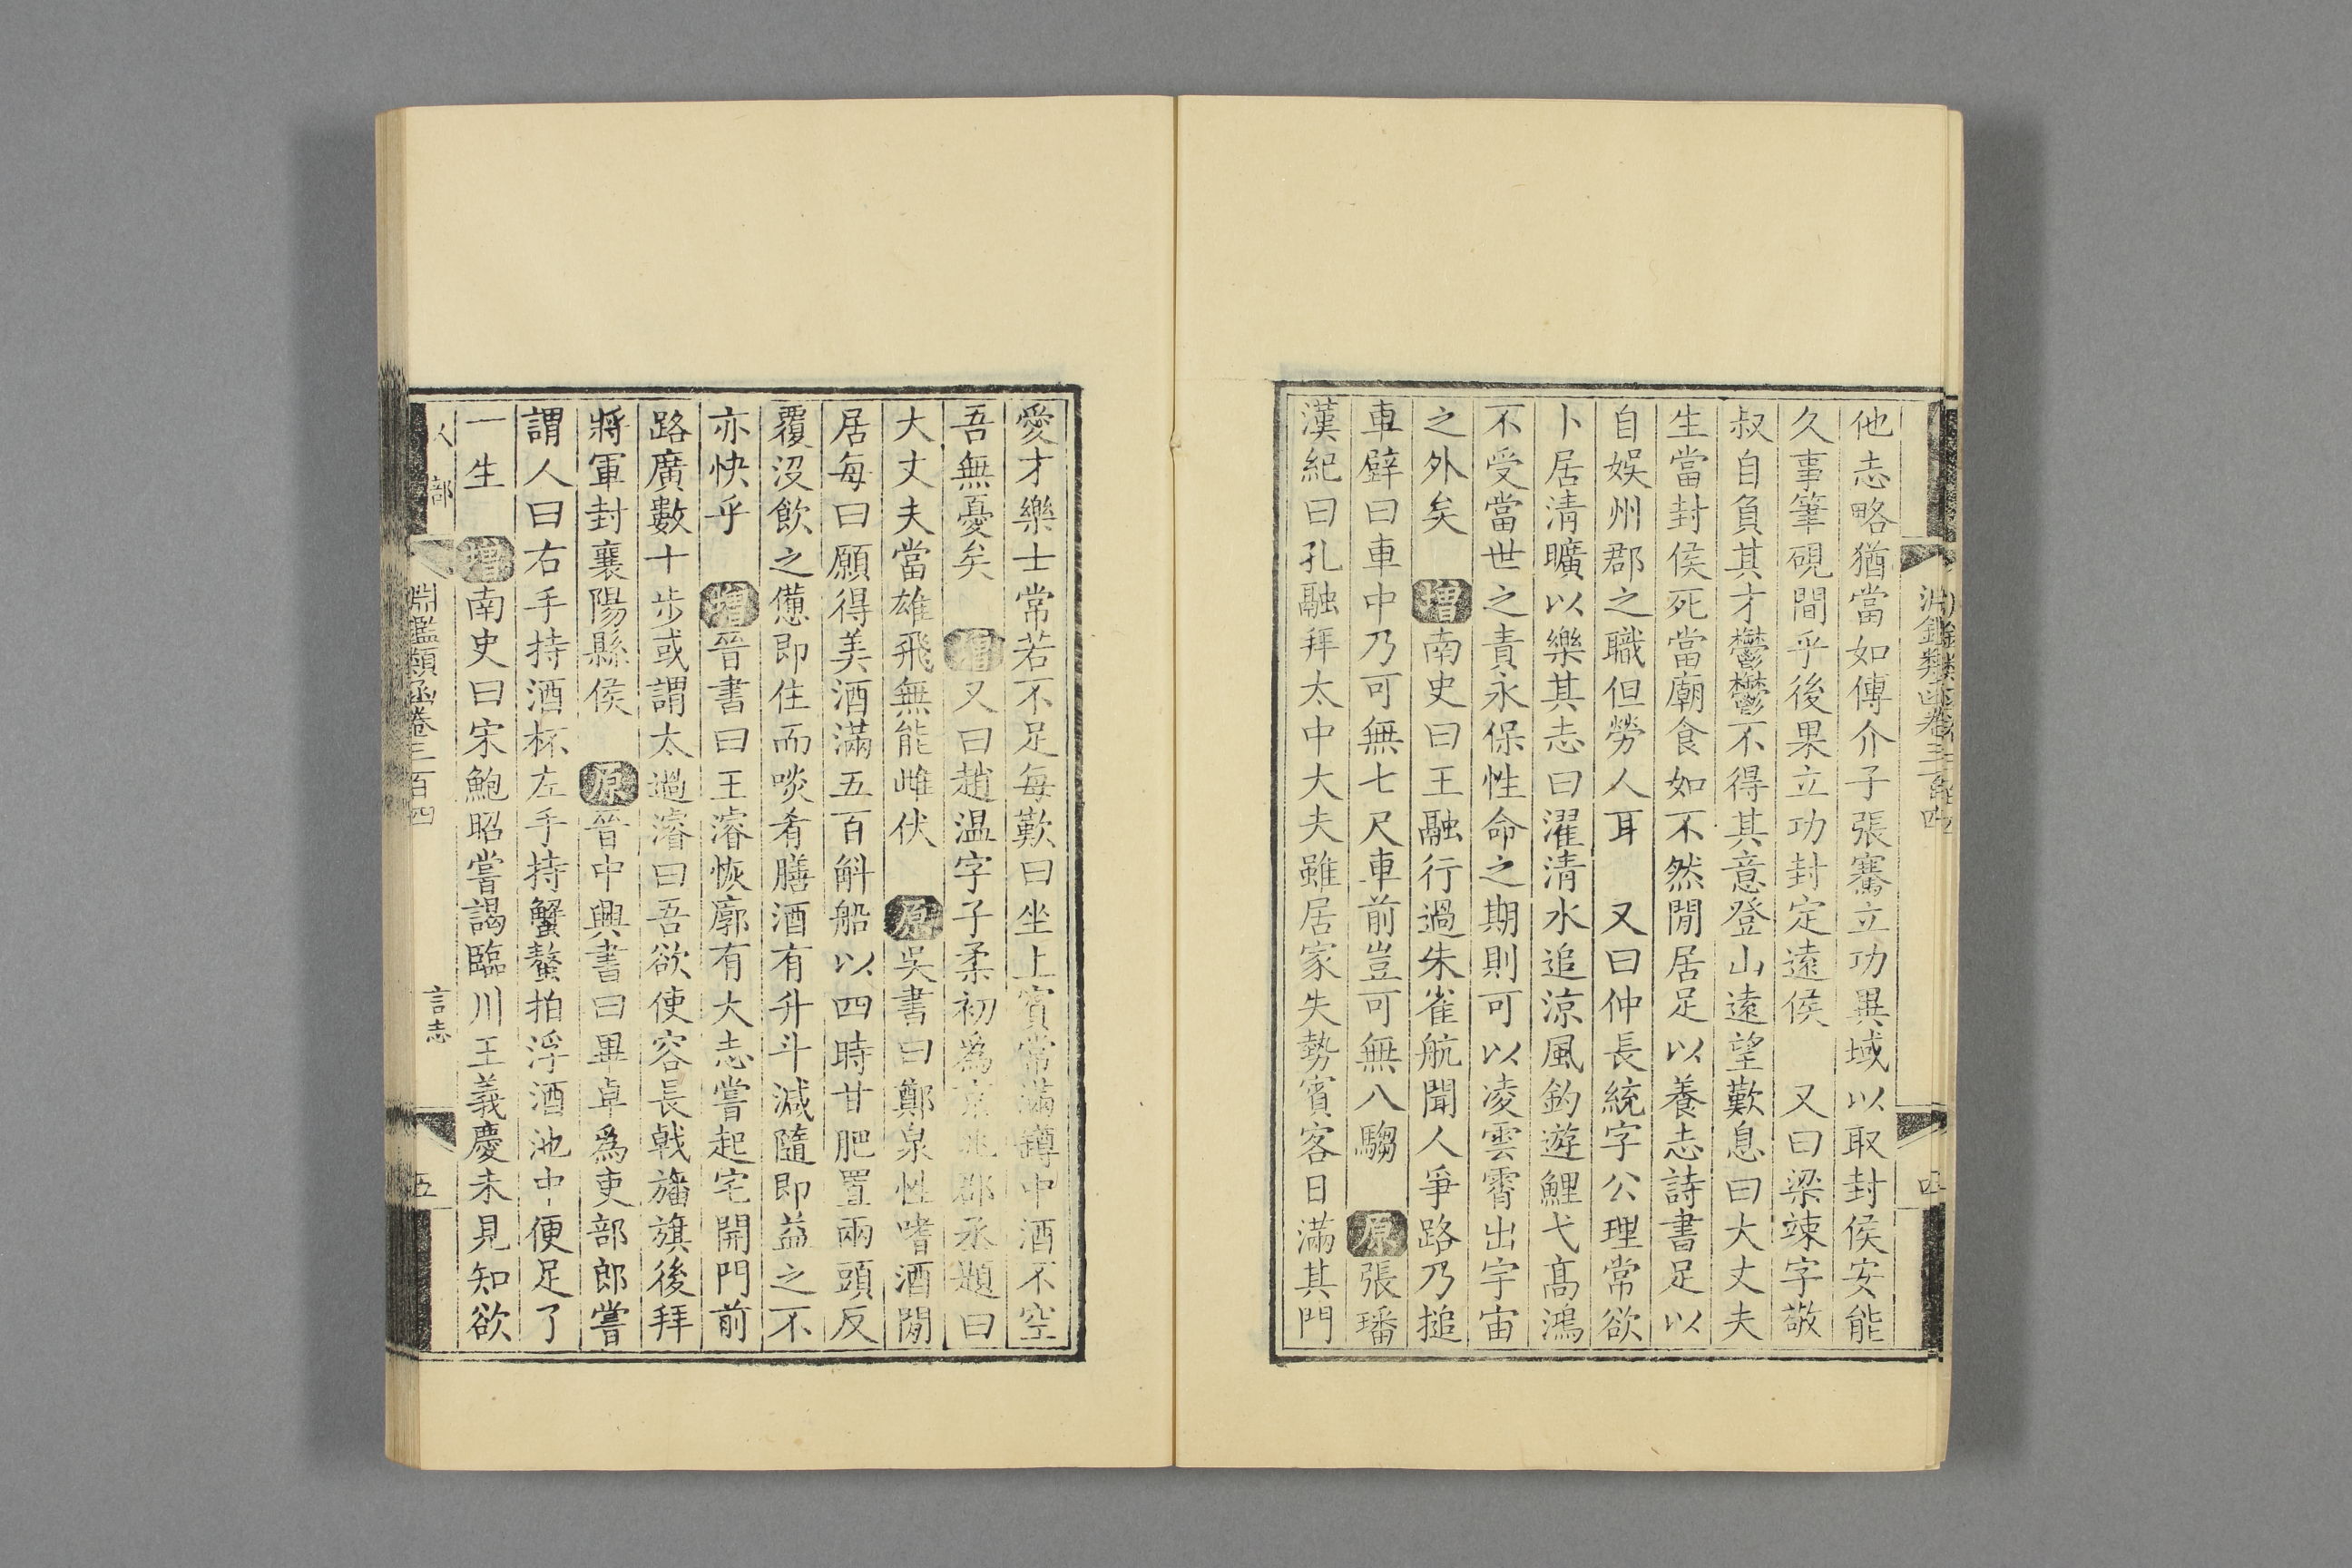 淵鑑類函卷三百四
四
他志略猶當如傅介子張騫立功異域以取封侯安能
久事筆硯間乎後果立功封定遠侯 又曰梁竦字敬
叔自負其才鬱鬱不得其意登山遠望歎息曰大丈夫
生當封侯死當廟食如不然閒居足以養志詩書足以
自娛州郡之職但勞人耳 又曰仲長統字公理常欲
卜居清曠以樂其志曰濯清水追涼風釣遊鯉弋髙鴻
不受當世之責永保性命之期則可以凌雲霄出宇宙
之外矣 增南史曰王融行過朱雀航聞人爭路乃搥
車壁曰車中乃可無七尺車前豈可無八騶 原張璠
漢紀曰孔融拜太中大夫雖居家失勢賓客日滿其門
愛才樂士常若不足每歎曰坐上賓常滿罇中酒不空
吾無憂矣 增又曰趙温字子柔初為京兆郡丞題曰
大丈夫當雄飛無能雌伏 原吳書曰鄭泉性嗜酒閒
居每曰願得美酒滿五百斛船以四時甘肥置兩頭反
覆沒飲之憊即住而啖肴膳酒有升斗減隨即益之不
亦快乎 增晉書曰王濬恢廓有大志嘗起宅開門前
路廣數十步或謂太過濬曰吾欲使容長戟旛旗後拜
將軍封襄陽縣侯 原晉中興書曰畢卓爲吏部郎嘗
謂人曰右手持酒杯左手持蟹螯拍浮酒池中便足了
一生 增南史曰宋鮑昭嘗謁臨川王義慶未見知欲
人部
淵鑑類函卷三百四
言志
五